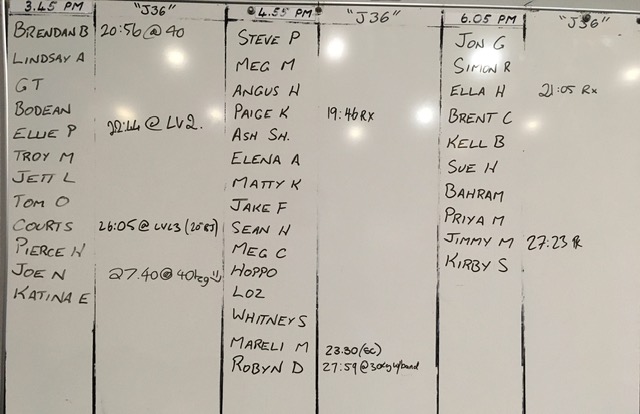 3.45 PM "J36" 4.55 PM "J36" 6.05 PM "J36"
BRENDAN B 20:56 @ 40
LINDSAY A
GT
BODEAN
ELLIE P 22:44 @ LV2.
TROY M
JETT L
TOM O
COURTS 26:05 @ LVL3
PIERCE H
JOE N 27.40 @ 40kg
KATINA E
STEVE P
MEG M
ANGUS H
PAIGE K 19:46 Rx
ASH SH.
ELENA A
MATTY K
JAKE F
SEAN H
MEG C
HOPPO
LOZ
WHITNEY S
MARELI M 23.30 (SC)
ROBYN D 27:59 @ 30kg w/band
JON G
SIMON R
ELLA H 21:05 Rx
BRENT C
KELL B
SUE H
BAHRAM
PRIYA M
JIMMY M 27:23 Rx
KIRBY S